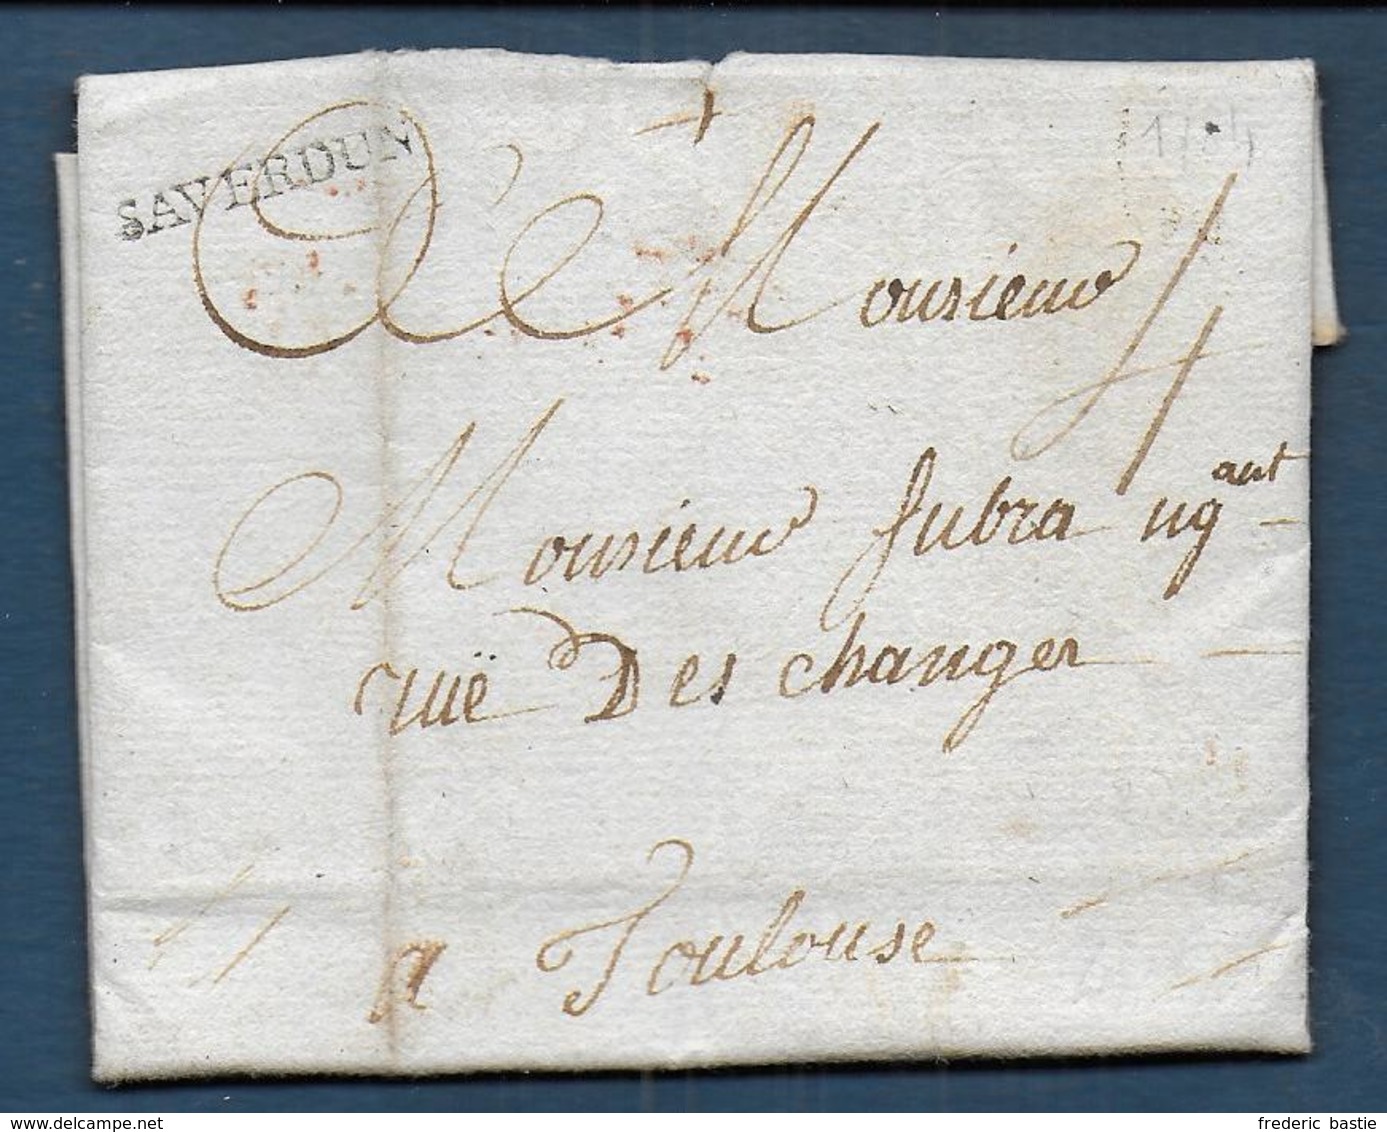 SAVERDUN
A Monsieur
4
Monsieur Jubra ngant
ruë Des changer
a Toulouse
www.delcampe.net
frederic bastie